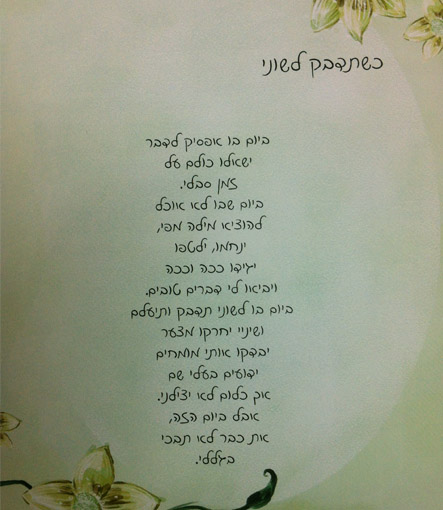 כשתדבק לשוני
ביום בו אפסיק לדבר
ישאלו כולם על
זמן סבלי.
ביום שבו לא אוכל
להוציא מילה מפי,
ינחמו, ילטפו
יגידו ככה וככה
ויביאו לי דברים טובים.
ביום בו לשוני תדבק ותיעלם
ושיניי יחרקו מצער
יבדקו אותי מומחים
ידועים בעלי שם
אך כלום לא יצילני.
אבל ביום הזה,
את כבר לא תבכי
בגללי.